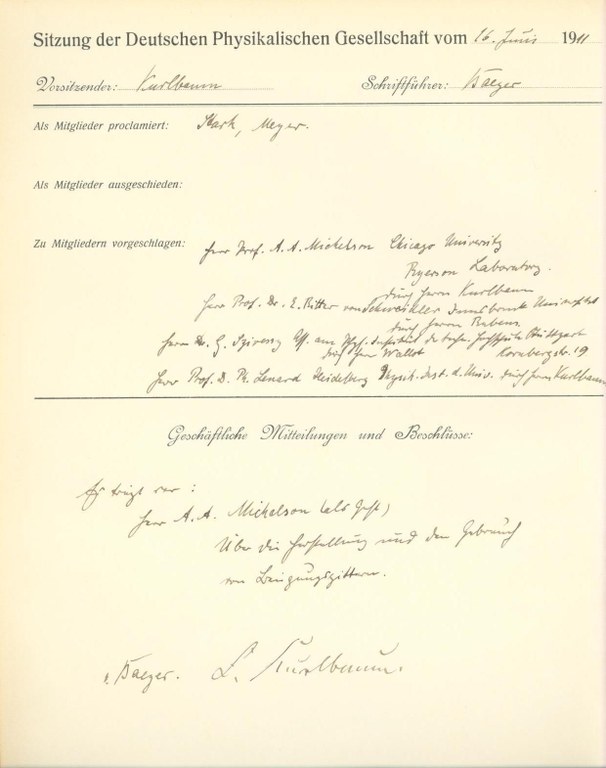 Sitzung der Deutschen Physikalischen Gesellschaft vom 16. Juni 1911
Vorsitzender: Kurlbaum Schriftführer: v. Baeyer
Als Mitglieder proclamiert: Stark, Meyer.
Als Mitglieder ausgeschieden:
Zu Mitgliedern vorgeschlagen: Herr Prof. A. A. Michelson Chicago University
Ryerson Laboratory.
durch Herrn Kurlbaum
Herr Prof. Dr. E. Ritter von Schweidler Innsbruck Universität
durch Herrn Rubens
Herrn Dr. G. Szivessy Ass. am Phys. Institut d. techn. Hochschule Stuttgart
durch Herrn Wallot Kornbergstr. 19
Herr Prof. D. Ph. Lenard Heidelberg Physik. Inst. d. Univ. durch Herrn Kurlbaum
Geschäftliche Mitteilungen und Beschlüsse:
Es trägt vor:
Herr A. A. Michelson (als Gast)
Über die Herstellung und den Gebrauch
von Beugungsgittern.
v. Baeyer. F. Kurlbaum.